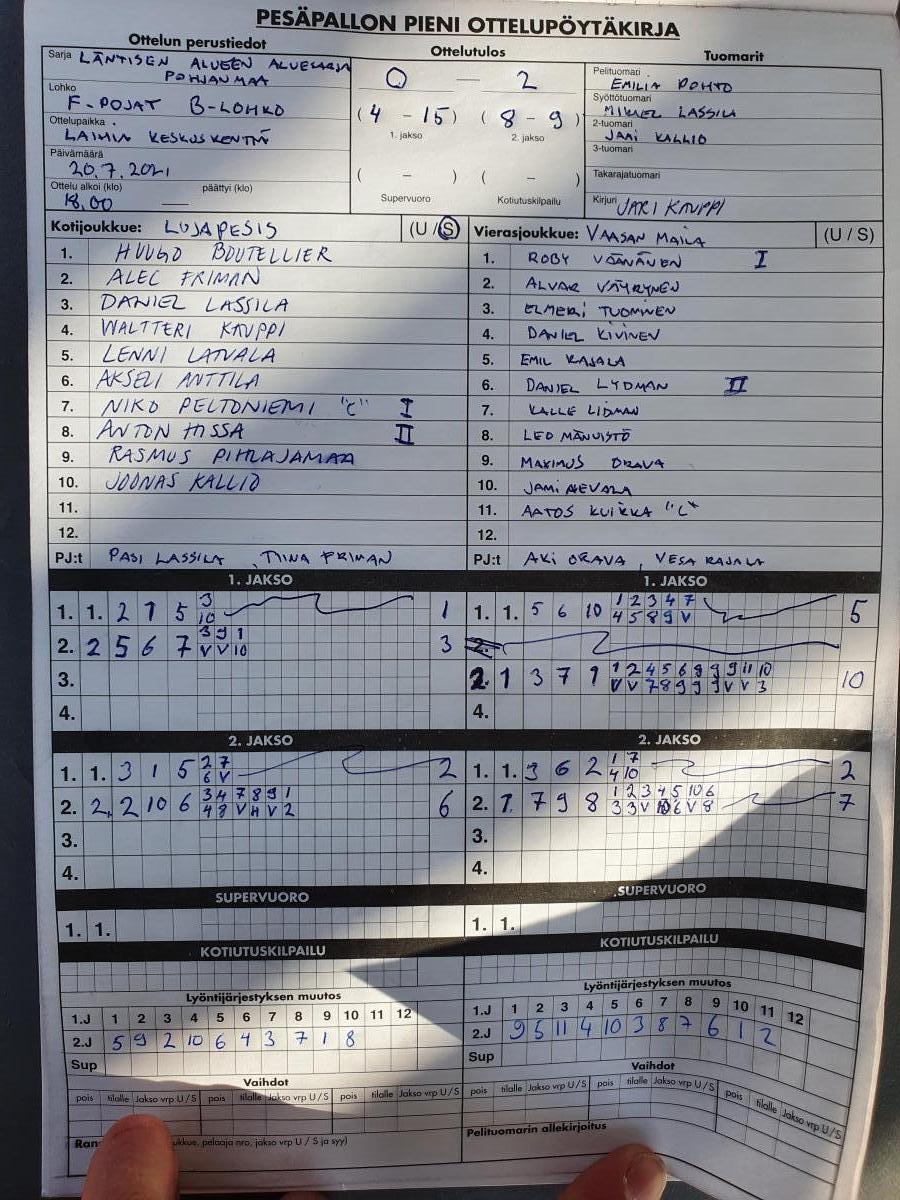 PESÄPALLON PIENI OTTELUPÖYTÄKIRJA
Ottelun perustiedot
Ottelutulos
Tuomarit
Sarja LÄNTISEN ALUEEN ALUESARJA
POHJANMAA
Lohko
F-POJAT B-LOHKO
Ottelupaikka
LAIHIA KESKUSKENTTÄ
Päivämäärä
20.7.2021
Ottelu alkoi (klo) päättyi (klo)
18.00 —
0 — 2
(4 - 15) (8 - 9)
1. jakso 2. jakso
( - ) ( - )
Supervuoro Kotiutuskilpailu
Pelituomari
EMILIA POHTO
Syöttötuomari
MIKAEL LASSILA
2-tuomari
JANI KALLIO
3-tuomari
Takarajatuomari
Kirjuri JARI KAUPPI
Kotijoukkue: LUJAPESIS (U / S)
1. HUUGO BOUTELLIER
2. ALEC FRIMAN
3. DANIEL LASSILA
4. WALTTERI KAUPPI
5. LENNI LATVALA
6. AKSELI ANTTILA
7. NIKO PELTONIEMI "C" I
8. ANTON HISSA II
9. RASMUS PIHLAJAMAA
10. JOONAS KALLIO
11.
12.
PJ:t PASI LASSILA, TIINA FRIMAN
Vierasjoukkue: VAASAN MAILA (U / S)
1. ROBY VÄÄNÄNEN I
2. ALVAR VÄYRYNEN
3. ELMERI TUOMINEN
4. DANIEL KIVINEN
5. EMIL RAJALA
6. DANIEL LYDMAN II
7. KALLE LIDMAN
8. LEO MÄNNISTÖ
9. MAXIMUS ORAVA
10. JAMI
11. AATOS KUIKKA "C"
12.
PJ:t AKI ORAVA, VESA RAJALA
1. JAKSO
1. 1. 2 1 5 3 1
10
2. 2 5 6 7 3 9 1 3
V V 10
3.
4.
1. JAKSO
1. 1. 5 6 10 1 2 3 4 7 5
4 5 8 9 V
2.
2. 1 3 7 9 1 2 4 5 6 9 9 9 11 10 10
V V 7 8 9 9 9 V V 3
4.
2. JAKSO
1. 1. 3 1 5 2 7 2
6 V
2. 2. 2 10 6 3 4 7 8 9 1 6
4 8 V H V 2
3.
4.
2. JAKSO
1. 1. 3 6 2 1 7 2
4 10
2. 1 7 9 8 1 2 3 4 5 10 6 7
3 3 V 10 6 V 8
3.
4.
SUPERVUORO
1. 1.
SUPERVUORO
1. 1.
KOTIUTUSKILPAILU
KOTIUTUSKILPAILU
Lyöntijärjestyksen muutos
1.J 1 2 3 4 5 6 7 8 9 10 11 12
2.J 5 9 2 10 6 4 3 7 1 8
Sup
Lyöntijärjestyksen muutos
1.J 1 2 3 4 5 6 7 8 9 10 11 12
2.J 9 5 11 4 10 3 8 7 6 1 2
Sup
Vaihdot
pois tilalle Jakso vrp U / S pois tilalle Jakso vrp U / S pois tilalle Jakso vrp U / S
Vaihdot
pois tilalle Jakso vrp U / S pois tilalle Jakso vrp U / S pois tilalle Jakso vrp U / S
Ran ukkue, pelaaja nro, jakso vrp U / S ja syy)
Pelituomarin allekirjoitus